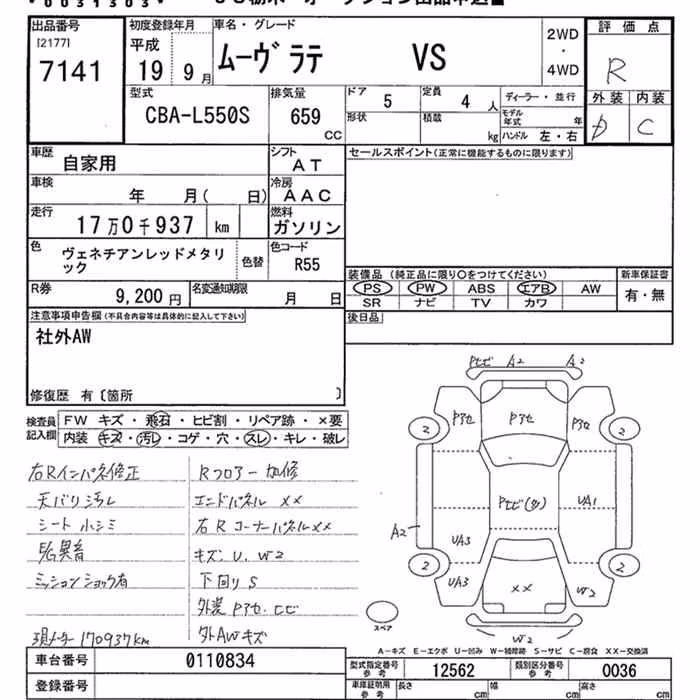 出品番号
[2177]
7141
初度登録年月
平成
19 9月
車名・グレード
ムーヴ ラテ VS
2WD
・
4WD
評価点
R
外装 内装
D C
型式
CBA-L550S
排気量
659
CC
ドア
5
定員
4 人
ディーラー・並行
形状
積載
kg
モデル年式
年
ハンドル 左・右
車歴
自家用
シフト
AT
車検
年 月( 日)
冷房
AAC
走行
17万0千937 km
燃料
ガソリン
色
ヴェネチアンレッドメタリック
色替
色コード
R55
R券
9,200 円
名変通知期限
月 日
セールスポイント(正常に機能するものに限ります)
装備品 (純正品に限り○をつけてください)
PS PW ABS エアB AW
SR ナビ TV カワ
新車保証書
有・無
後日品
注意事項申告欄(不具合内容等は具体的に記入して下さい)
社外AW
修復歴 有〔箇所 〕
検査員記入欄
FW キズ・飛石・ヒビ割・リペア跡・×要
内装 キズ・汚レ・コゲ・穴・スレ・キレ・破レ
右Rインパネ修正
天バリ汚レ
シート 小シミ
異音
ミッションショック有
現メーター 170937km
Rフロアー 加修
エンドパネル ××
右Rコーナーパネル××
キズ、U、W2
下回りS
外装 Pアセ、ヒビ
外AWキズ
Pヒビ A2 A2
Pアセ Pアセ Pアセ
2 2
Pヒビ(タ)
A2 UA3 UA1
2 2
UA3 ×× W2
W2
スペア
A-キズ E-エクボ U-凹み W-補修跡 S-サビ C-腐食 XX-交換済
車台番号
0110834
登録番号
型式指定番号
参考
12562
類別区分番号
参考
0036
車庫証明用
参考
長さ cm
幅 cm
高さ cm